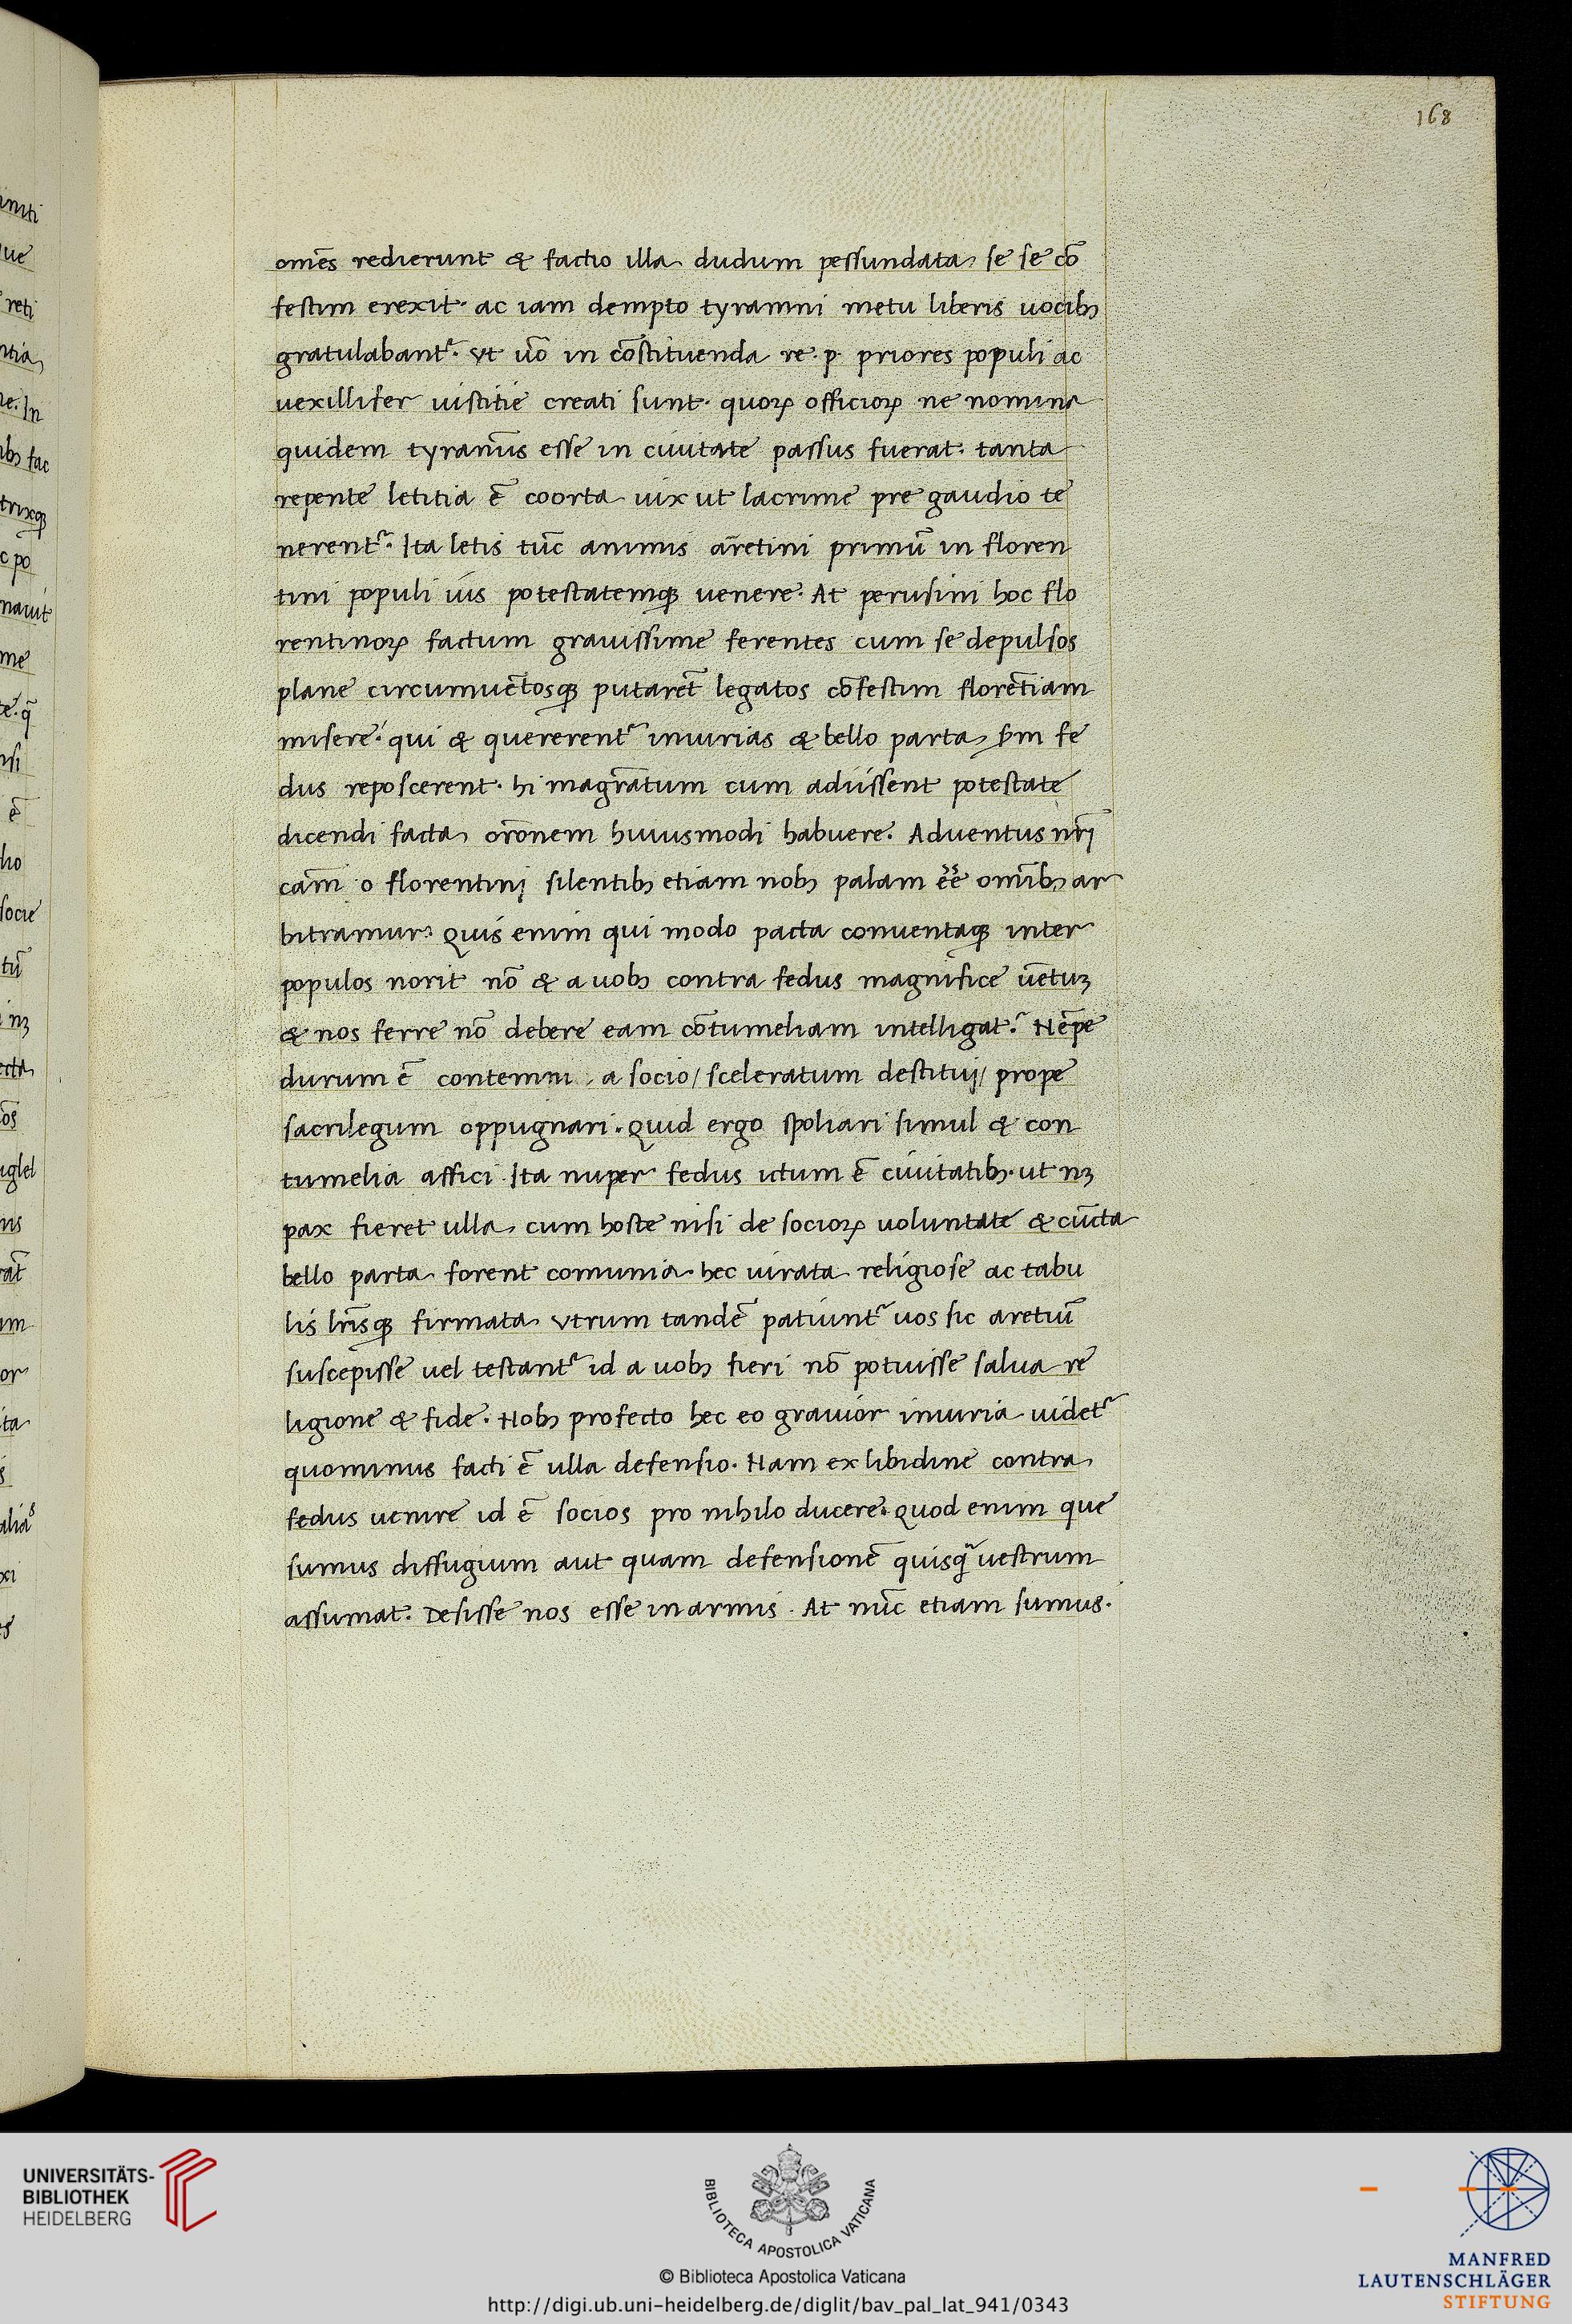 168
om̅es redierunt & factio illa dudum pessundata se se co̅
festim erexit. ac iam dempto tyramni metu liberis uocibꝫ
gratulabant᷑. Vt uo̅ in co̅stituenda re. p. priores populi ac
uexillifer iustitie creati sunt. quoꝝ officioꝝ ne nomina
quidem tyran̅us esse in ciuitate passus fuerat. tanta
repente letitia e̅ coorta uix ut lacrime pre gaudio te
nerent᷑. Ita letis tu̅c animis ar̅etini primu̅ in floren
tini populi ius potestatemqꝫ uenere. At perusini hoc flo
rentinoꝝ factum grauissime ferentes cum se depulsos
plane circumue̅tosqꝫ putare̅t legatos co̅festim flore̅tiam
misere. qui & quererent᷑ iniurias & bello parta s̅m fe
dus reposcerent. hi magr̅atum cum adiissent potestate
dicendi facta, oro̅nem huiusmodi habuere. Aduentus nr̅j
cam̅ o florentinj silentibꝫ etiam nobꝫ palam e̅e̅ omi̅bꝫ ar
bitramur. Quis enim qui modo pacta conuentaqꝫ inter
populos norit no̅ & a uobꝫ contra fedus magnifice ue̅tuꝫ
& nos ferre no̅ debere eam co̅tumeliam intelligat. Ne̅pe
durum e̅ contemni, a socio/ sceleratum destituj/ prope
sacrilegum oppugnari. Quid ergo spoliari simul & con
tumelia affici. Ita nuper fedus ictum e̅ ciuitatibꝫ. ut nꝫ
pax fieret ulla, cum hoste nisi de socioꝝ uoluntate & cu̅cta
bello parta forent comunia. hec iurata religiose ac tabu
lis lr̅isqꝫ firmata. Vtrum tande̅ patiunt᷑ uos sic aretiu̅
suscepisse uel testant᷑ id a uobꝫ fieri no̅ potuisse salua re
ligione & fide. Nobꝫ profecto hec eo grauior iniuria uidet᷑
quominus facti e̅ ulla defensio. Nam ex libidine contra
fedus uenire id e̅ socios pro nihilo ducere. Quod enim que
sumus diffugium aut quam defensione̅ quisqᷓ uestrum
assumat. Desisse nos esse in armis. At nu̅c etiam sumus.
UNIVERSITÄTS-
BIBLIOTHEK
HEIDELBERG
BIBLIOTECA APOSTOLICA VATICANA
© Biblioteca Apostolica Vaticana
http://digi.ub.uni-heidelberg.de/diglit/bav_pal_lat_941/0343
MANFRED
LAUTENSCHLÄGER
STIFTUNG